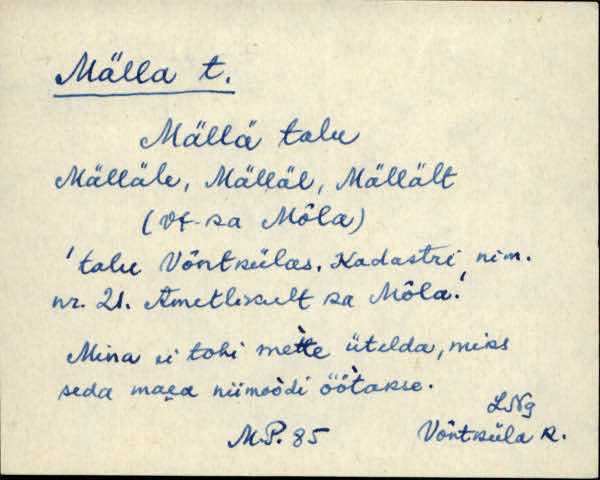 Mälla t.
Mällä talu
Mälläle, Mälläl, Mällält
(vt. ka Mõla)
'talu Võntkülas. Kadastri nim.
nr. 21. Ametlikult ka Mõla.'
Mina ei tohi mette ütelda, miks
seda maea niimoòdi öötakse.
LNg
M.P. 85 Võntküla R.